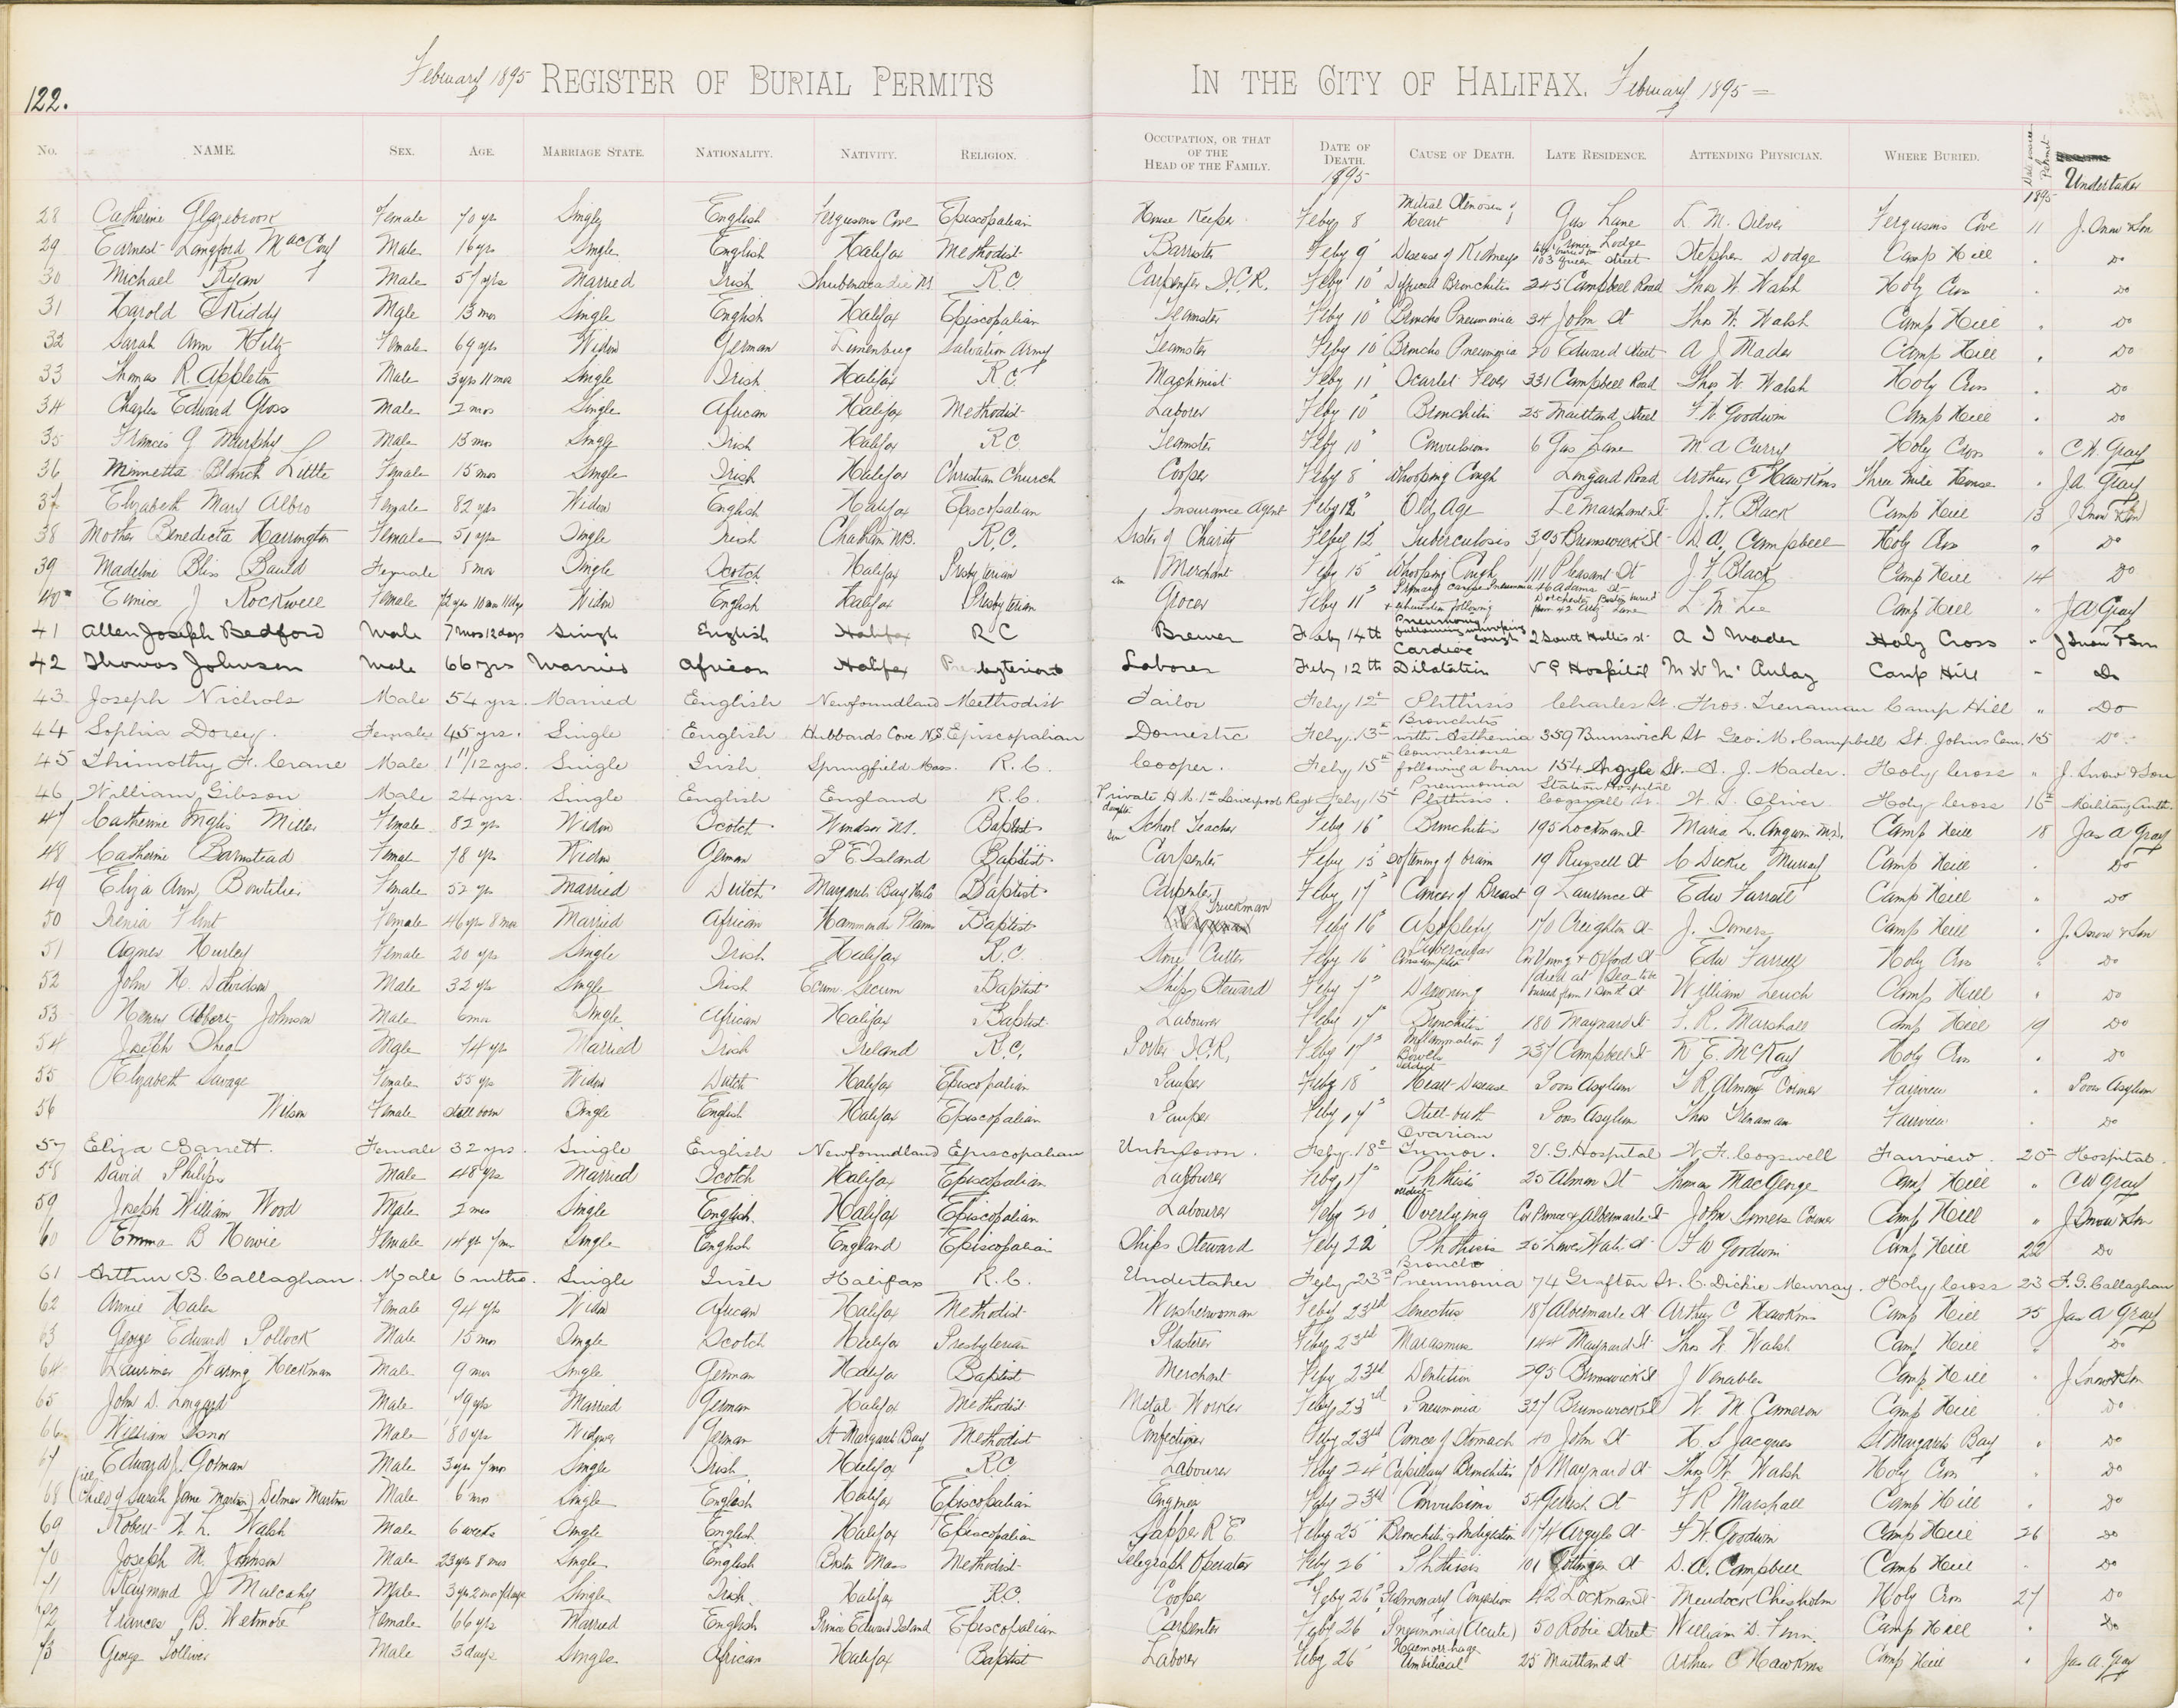 122.
February 1895 REGISTER OF BURIAL PERMITS IN THE CITY OF HALIFAX. February 1895 =
No. NAME. SEX. AGE. MARRIAGE STATE. NATIONALITY. NATIVITY. RELIGION. OCCUPATION, OR THAT OF THE HEAD OF THE FAMILY. DATE OF DEATH. 1895 CAUSE OF DEATH. LATE RESIDENCE. ATTENDING PHYSICIAN. WHERE BURIED. Permit 1895 Undertaker
28 Catherine Glazebrook Female 70 yr Single English Fergusons Cove Episcopalian House Keeper Feby 8 Mitral Stenosis of Heart Gas Lane L. M. Silver Fergusons Cove 11 J. Snow & Son
29 Earnest Longford MacCoy Male 16 yrs Single English Halifax Methodist Barrister Feby 9" Disease of Kidneys Prince Lodge 103 Queen Street Stephen Dodge Camp Hill " Do
30 Michael Ryan Male 57 yrs Married Irish Shubenacadie NS R.C. Carpenter I.C.R. Feby 10" Bronchitis 245 Campbell Road Thos W. Walsh Holy Cross " Do
31 Harold E Kiddy Male 13 mos Single English Halifax Episcopalian Teamster Feby 10" Broncho Pneumonia 34 John St Thos W. Walsh Camp Hill " Do
32 Sarah Ann Hiltz Female 69 yrs Widow German Lunenburg Salvation Army Teamster Feby 10 Broncho Pneumonia 20 Edward Street A J Mader Camp Hill " Do
33 Thomas R. Appleton Male 3 yrs 11 mos Single Irish Halifax R.C. Machinist Feby 11" Scarlet Fever 331 Campbell Road Thos W. Walsh Holy Cross " Do
34 Charles Edward Gloss Male 2 mos Single African Halifax Methodist Laborer Feby 10" Bronchitis 25 Maitland Street F. W Goodwin Camp Hill " Do
35 Francis G Murphy Male 13 mos Single Irish Halifax R.C. Teamster Feby 10" Convulsions 6 Gas Lane M. A Curry Holy Cross " C W. Gray
36 Minnetta Blanch Little Female 15 mos Single Irish Halifax Christian Church Cooper Feby 8" Whooping Cough Longard Road Arthur C Hawkins Three Mile House " J A Gray
37 Elizabeth Mary Albro Female 82 yrs Widow English Halifax Episcopalian Insurance Agent Feby 12" Old Age LeMarchant St J. F. Black Camp Hill 13 J Snow & Son
38 Mother Benedicta Harrington Female 51 yrs Single Irish Chatham N.B. R.C. Sister of Charity Feby 12" Tuberculosis 395 Brunswick St D. A. Campbell Holy Cross " Do
39 Madeline Bliss Bauld Female 8 mos Single Scotch Halifax Presbyterian Merchant Feby 15" Whooping Cough 111 Pleasant St J. F. Black Camp Hill 14 Do
40 Eunice J Rockwell Female 72 yrs 10 mos 11 dys Widow English Halifax Presbyterian Grocer Feby 11" Pneumonia & exhaustion following 46 Adams St Dorchester Boston buried from 42 Artz Lane L M Lee Camp Hill " J A Gray
41 Allen Joseph Bedford Male 7 mos 12 days Single English Halifax R C Brewer Feby 14th Pneumonia following whooping cough 2 South Hollis St A J Mader Holy Cross " J Snow & Son
42 Thomas Johnson Male 66 yrs Married African Halifax Presbyterian Laborer Feby 12th Cardiac Dilatation V G Hospital M A McAulay Camp Hill " Do
43 Joseph Nichols Male 54 yrs. Married English Newfoundland Methodist Tailor Feby 12th Phthisis Charles St. Thos. Trenaman Camp Hill " Do
44 Sophia Dorey. Female 45 yrs. Single English Hubbards Cove N.S. Episcopalian Domestic Feby. 13th Bronchitis with Asthenia 359 Brunswick St Geo. M. Campbell St. Johns Cem. 15 Do
45 Thimothy F. Crane Male 1 11/12 yrs. Single Irish Springfield Mass. R.C. Cooper. Feby 15th Convulsions following a burn 154 Argyle St. A. J. Mader. Holy Cross " J. Snow & Son
46 William Gibson Male 24 yrs. Single English England R.C. Private H.M. 1st Liverpool Regt Feby 15th Pneumonia Phthisis. Station Hospital Cogswell St. W. S. Oliver Holy Cross 16th Military Auth.
47 Catherine Inglis Miller Female 82 yrs Widow Scotch Windsor N.S. Baptist School Teacher Feby 16" Bronchitis 195 Lockman St Maria L. Angwin M.D. Camp Hill 18 Jas A Gray
48 Catherine Barnstead Female 78 yrs Widow German P E Island Baptist Carpenter Feby 15" Softening of brain 19 Russell St C Dickie Murray Camp Hill " Do
49 Eliza Ann Boutilier Female 52 yrs Married Dutch Margarets Bay Baptist Carpenter Feby 17" Cancer of Breast 9 Laurence St Edw Farrell Camp Hill " Do
50 Irenia Flint Female 46 yrs 8 mos Married African Hammonds Plains Baptist Truckman Feby 16" Apoplexy 170 Creighton St J. Somers Camp Hill " J. Snow & Son
51 Agnes Hurley Female 20 yrs Single Irish Halifax R.C. Stone Cutter Feby 16" Tubercular Consumption Cor Young & Oxford St Edw Farrell Holy Cross " Do
52 John H. Davidson Male 32 yrs Single Irish Ecum Secum Baptist Ships Steward Feby 7" Drowning died at Sea to be buried from 1 South St William Leuch Camp Hill " Do
53 Henry Albert Johnson Male 6 mos Single African Halifax Baptist Labourer Feby 17" Bronchitis 180 Maynard St F. R. Marshall Camp Hill 19 Do
54 Joseph Shea Male 74 yrs Married Irish Ireland R.C. Porter I.C.R. Feby 17" Inflammation of Bowels 237 Campbell St W. E. McKay Holy Cross " Do
55 Elizabeth Savage Female 55 yrs Widow Dutch Halifax Episcopalian Pauper Feby 18" verdict Heart Disease Poors Asylum Almon Coroner Fairview " Poors Asylum
56 Wilson Female still born Single English Halifax Episcopalian Pauper Feby 17" Still-birth Poors Asylum Thos Trenaman Fairview " Do
57 Eliza Barrett. Female 32 yrs. Single English Newfoundland Episcopalian Unknown. Feby. 18th Ovarian Tumor. V. G. Hospital W. F. Cogswell Fairview 20th Hospital.
58 David Philips Male 48 yrs Married Scotch Halifax Episcopalian Labourer Feby 17" Phthisis 25 Almon St Thomas MacGeorge Camp Hill " C W Gray
59 Joseph William Wood Male 2 mos Single English Halifax Episcopalian Labourer Feby 20 verdict Overlying Cor Prince & Albermarle St John Somers Coroner Camp Hill " J Snow & Son
60 Emma B Howie Female 14 yrs 7 mos Single English England Episcopalian Ships Steward Feby 22 Phthisis 25 Lower Water St F W Goodwin Camp Hill 22 Do
61 Arthur B. Callaghan. Male 6 mths. Single Irish Halifax R.C. Undertaker Feby 23rd Broncho Pneumonia 74 Grafton St. C. Dickie Murray. Holy Cross 23 F. G. Callaghan
62 Annie Hales Female 94 yrs Widow African Halifax Methodist Washerwoman Feby 23rd Senectus 187 Albermarle St Arthur C Hawkins Camp Hill 25 Jas A Gray
63 George Edward Pollock Male 15 mos Single Scotch Halifax Presbyterian Plasterer Feby 23rd Marasmus 144 Maynard St Thos W. Walsh Camp Hill " Do
64 Heckman Male 9 mos Single German Halifax Baptist Merchant Feby 23rd Dentition 295 Brunswick St J Venables Camp Hill " J Snow & Son
65 John D. Longard Male 79 yrs Married German Halifax Methodist Metal Worker Feby 23rd Pneumonia 327 Brunswick St W. M Cameron Camp Hill " Do
66 William Isnor Male 80 yrs Widower German St Margarets Bay Methodist Confectioner Feby 23rd Cancer of Stomach 40 John St H. S Jacques St Margarets Bay " Do
67 Edward J. Gorman Male 3 yrs 7 mos Single Irish Halifax R C Labourer Feby 24" Capillary Bronchitis 70 Maynard St Thos W. Walsh Holy Cross " Do
68 (ill child of Sarah Jane Martin) Dilman Martin Male 6 mos Single English Halifax Episcopalian Engineer Feby 23rd Convulsions 54 Gerrish St F R Marshall Camp Hill " Do
69 Robert H. L. Walsh Male 6 weeks Single English Halifax Episcopalian Sapper R E Feby 25" Bronchitis & Indigestion 174 Argyle St F. W. Goodwin Camp Hill 26 Do
70 Joseph M. Johnson Male 23 yrs 8 mos Single English Boston Mass Methodist Telegraph Operator Feby 26" Phthisis 101 Gottingen St D. A. Campbell Camp Hill " Do
71 Raymond J Mulcahy Male 3 yrs 2 mos Single Irish Halifax R.C. Cooper Feby 26" Pulmonary Congestion 42 Lockman St Murdock Chisholm Holy Cross 27 Do
72 Frances B. Wetmore Female 66 yrs Married English Prince Edward Island Episcopalian Carpenter Feby 26 Pneumonia (Acute) 50 Robie Street William D. Finn. Camp Hill " Do
73 George Tolliver Male 3 days Single African Halifax Baptist Laborer Feby 26" Haemorrhage Umbilical 25 Maitland St Arthur C Hawkins Camp Hill " Jas A. Gray